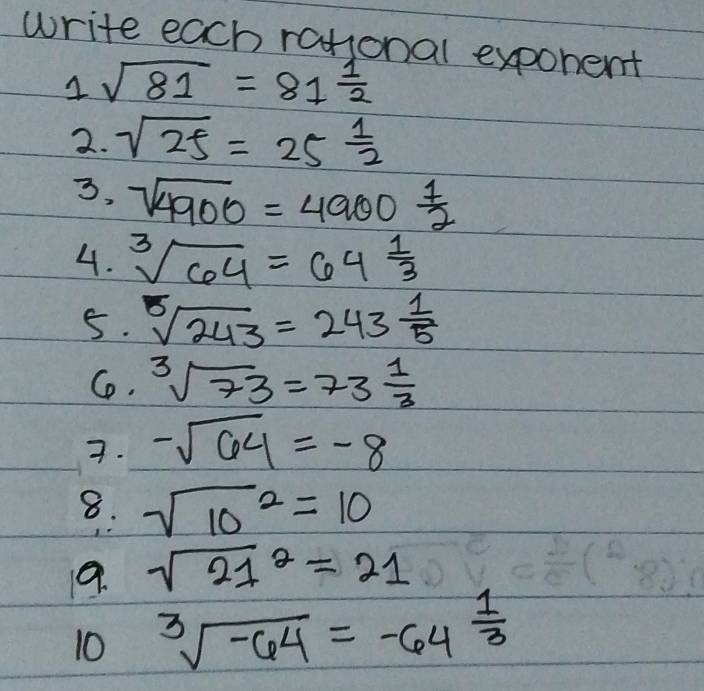 write each rational exponent
1 √81 = 81 1/2
2. √25 = 25 1/2
3. √4900 = 4900 1/2
4. ³√64 = 64 1/3
5. ⁵√243 = 243 1/5
6. ³√73 = 73 1/3
7. -√64 = -8
8. √10² = 10
19. √21² = 21
10 ³√-64 = -64 1/3